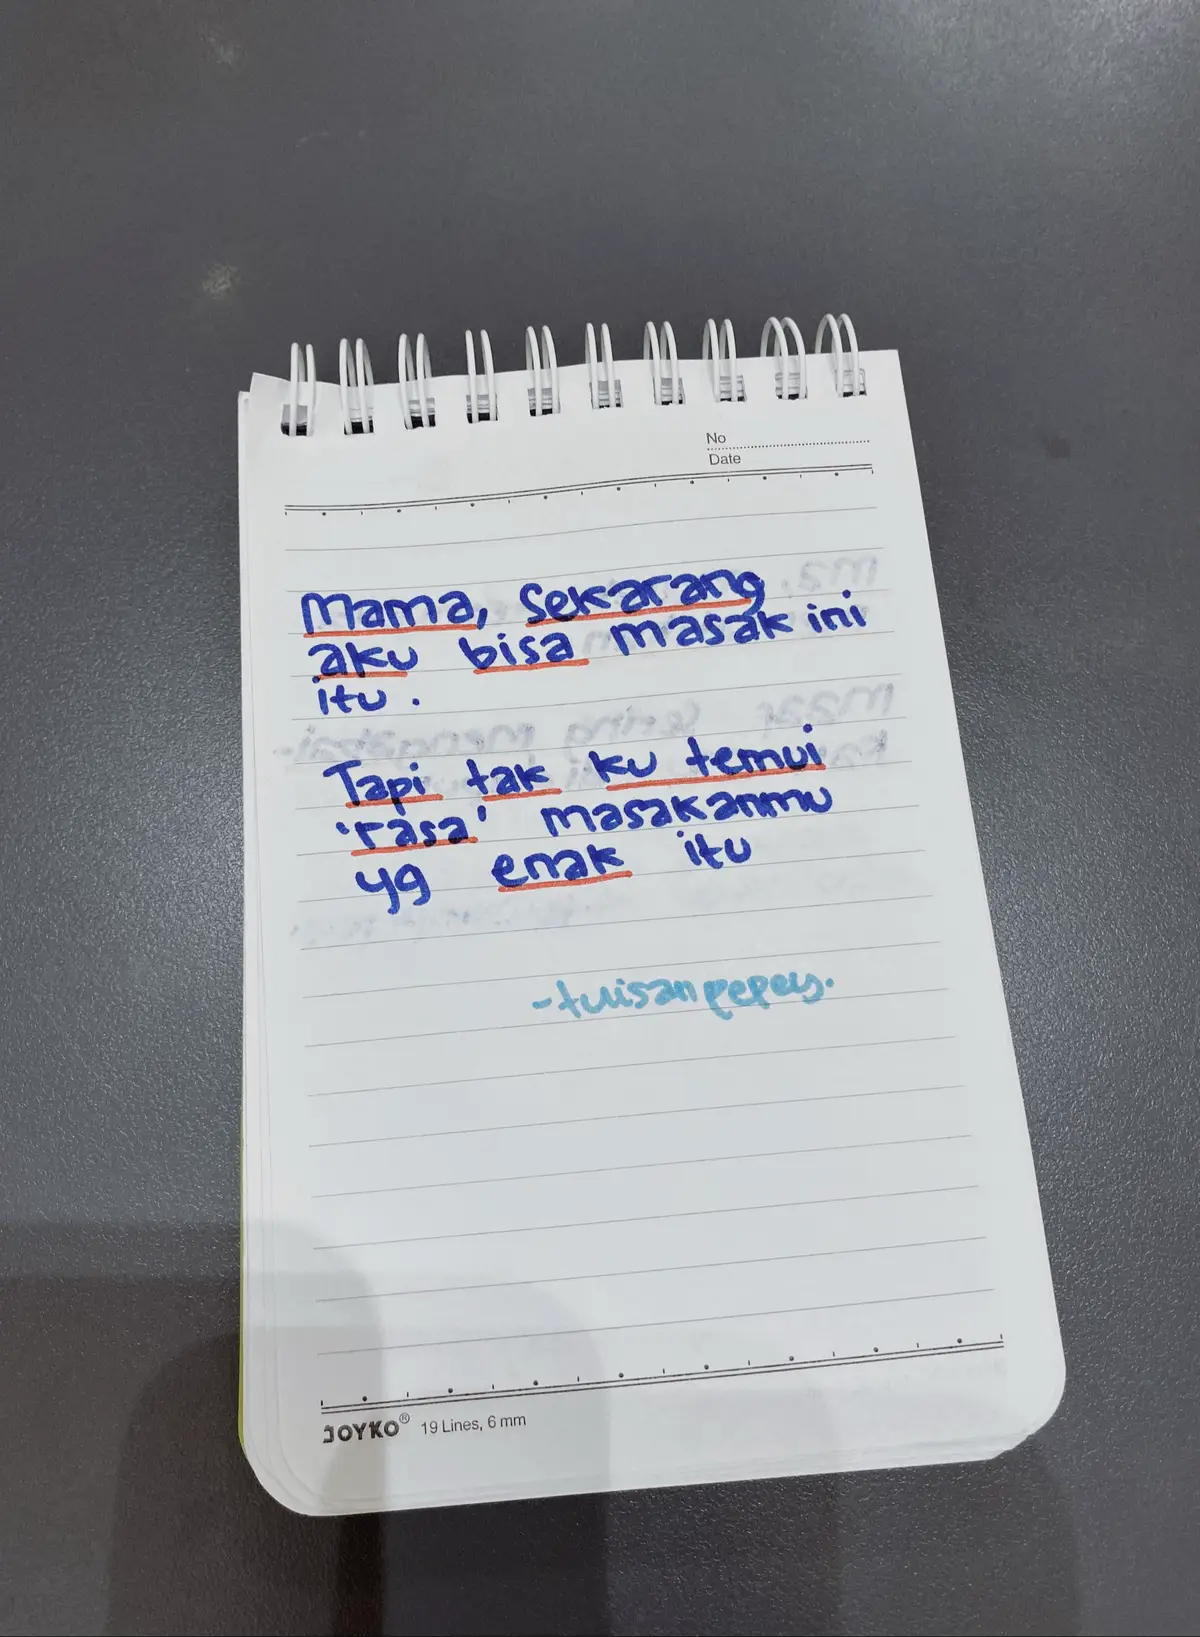 No
Date
Mama, sekarang
aku bisa masak ini
itu.
Tapi tak ku temui
'rasa' masakanmu
yg enak itu
-tulisanpepey.
JOYKO® 19 Lines, 6 mm